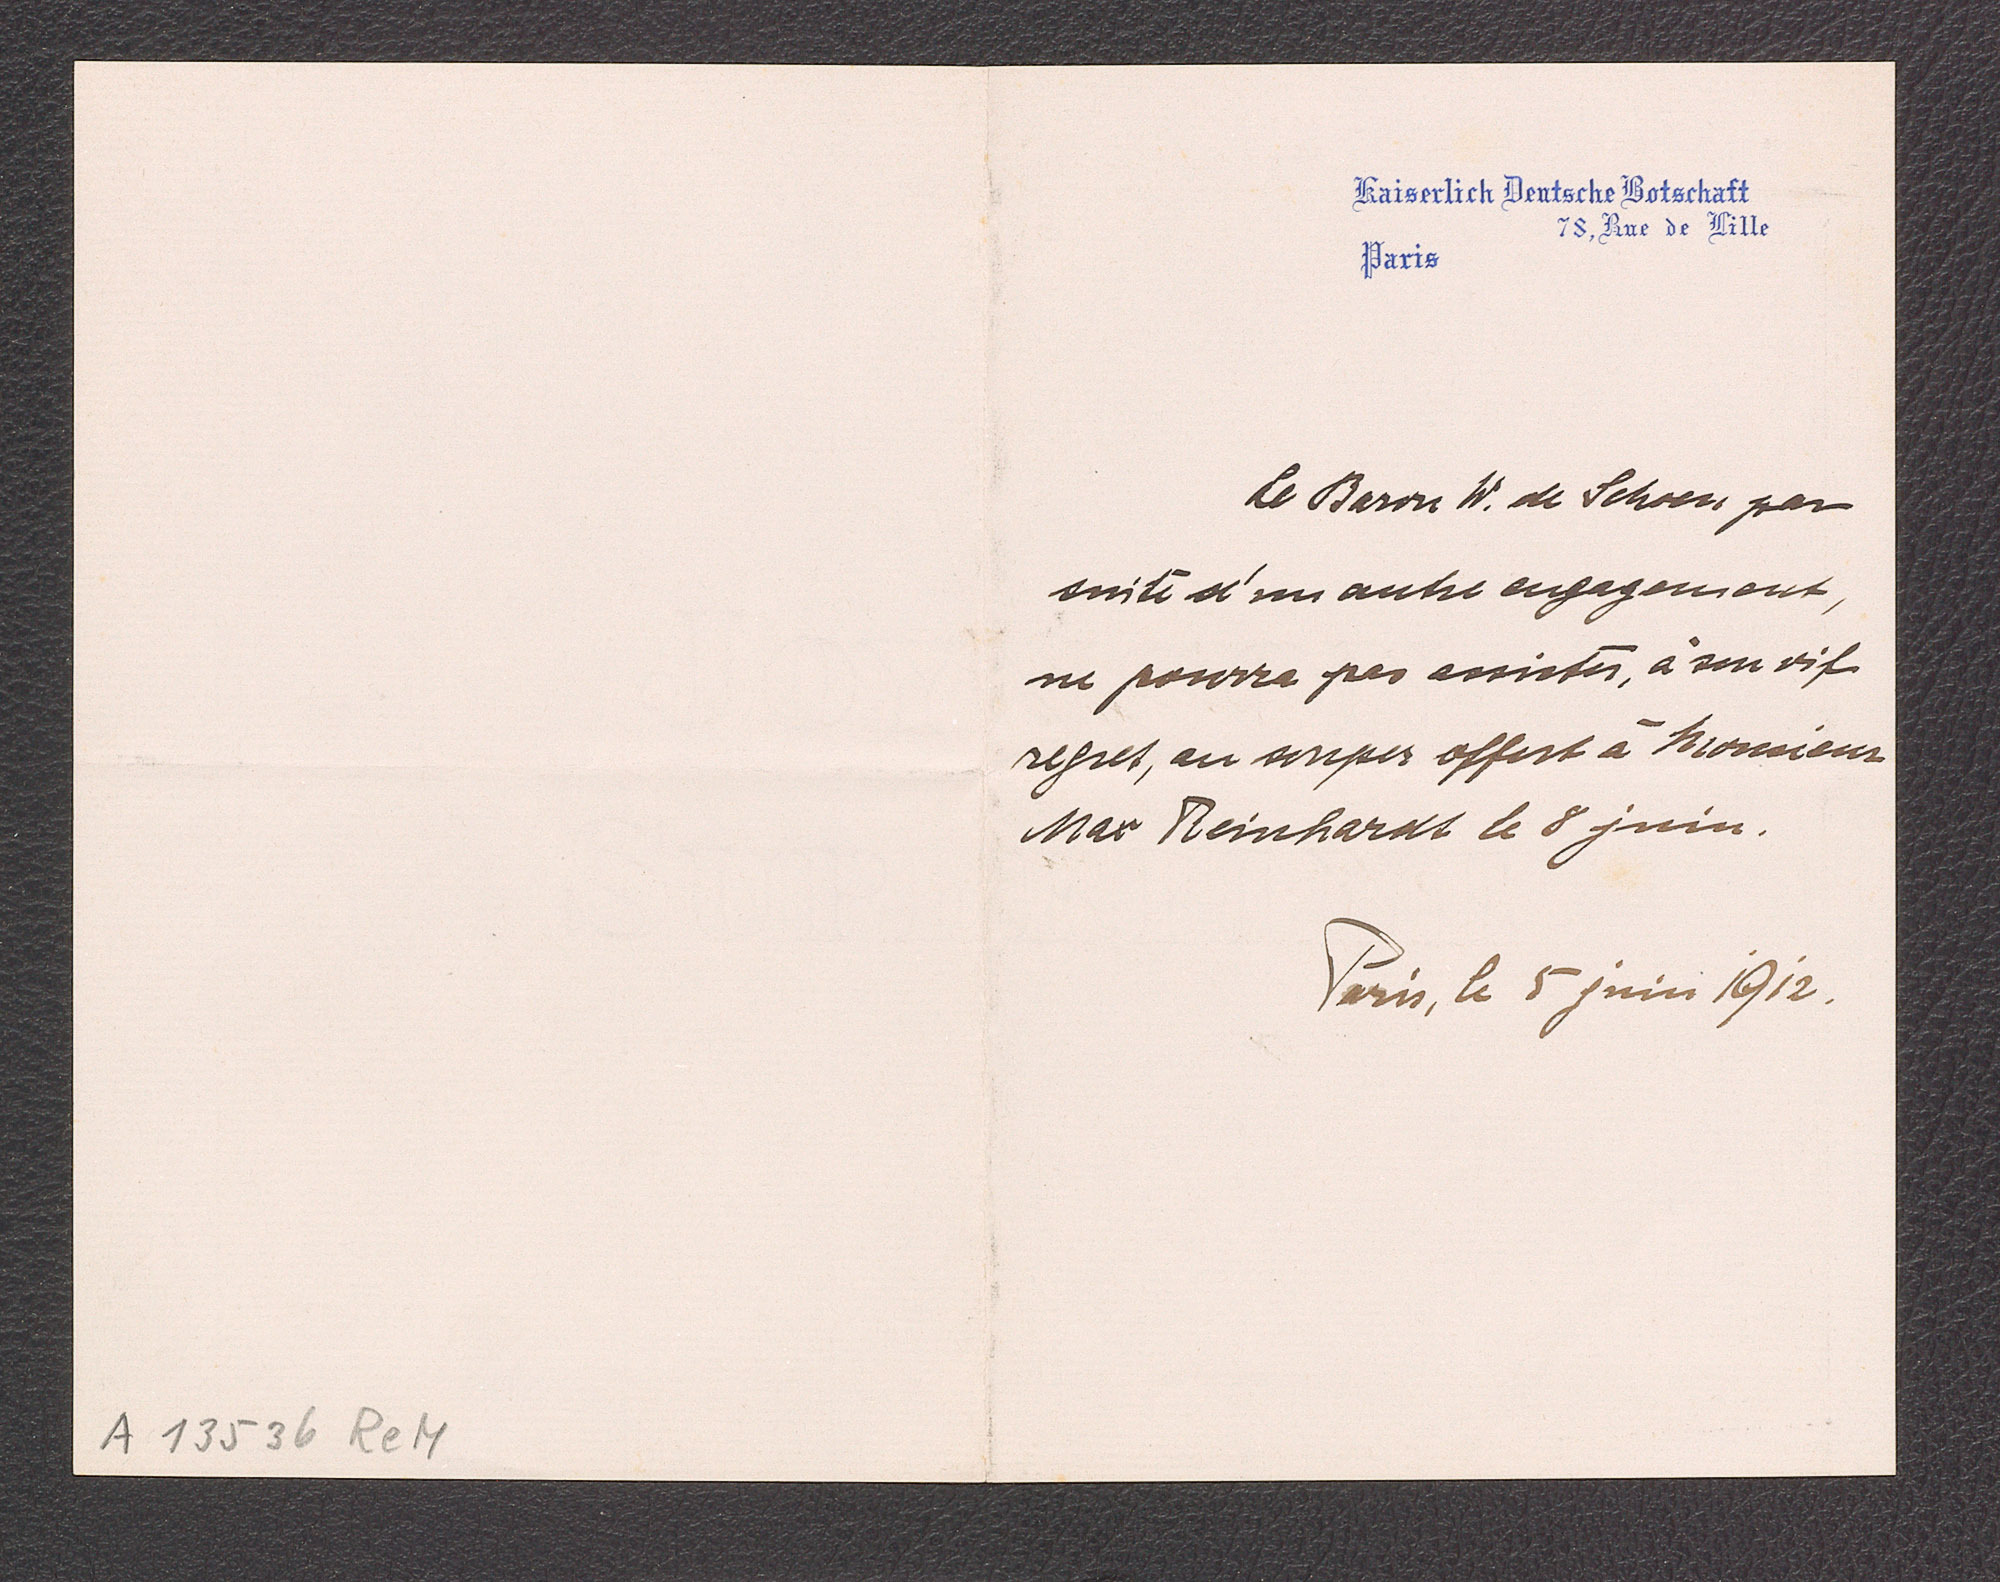 Kaiserlich Deutsche Botschaft
78, Rue de Lille
Paris
Le Baron W. de Schoen par
suite d'un autre engagement,
ne pourra pas assister, à son vif
regret, au souper offert à Monsieur
Max Reinhardt le 8 juin.
Paris, le 5 juin 1912.
A 13536 ReM